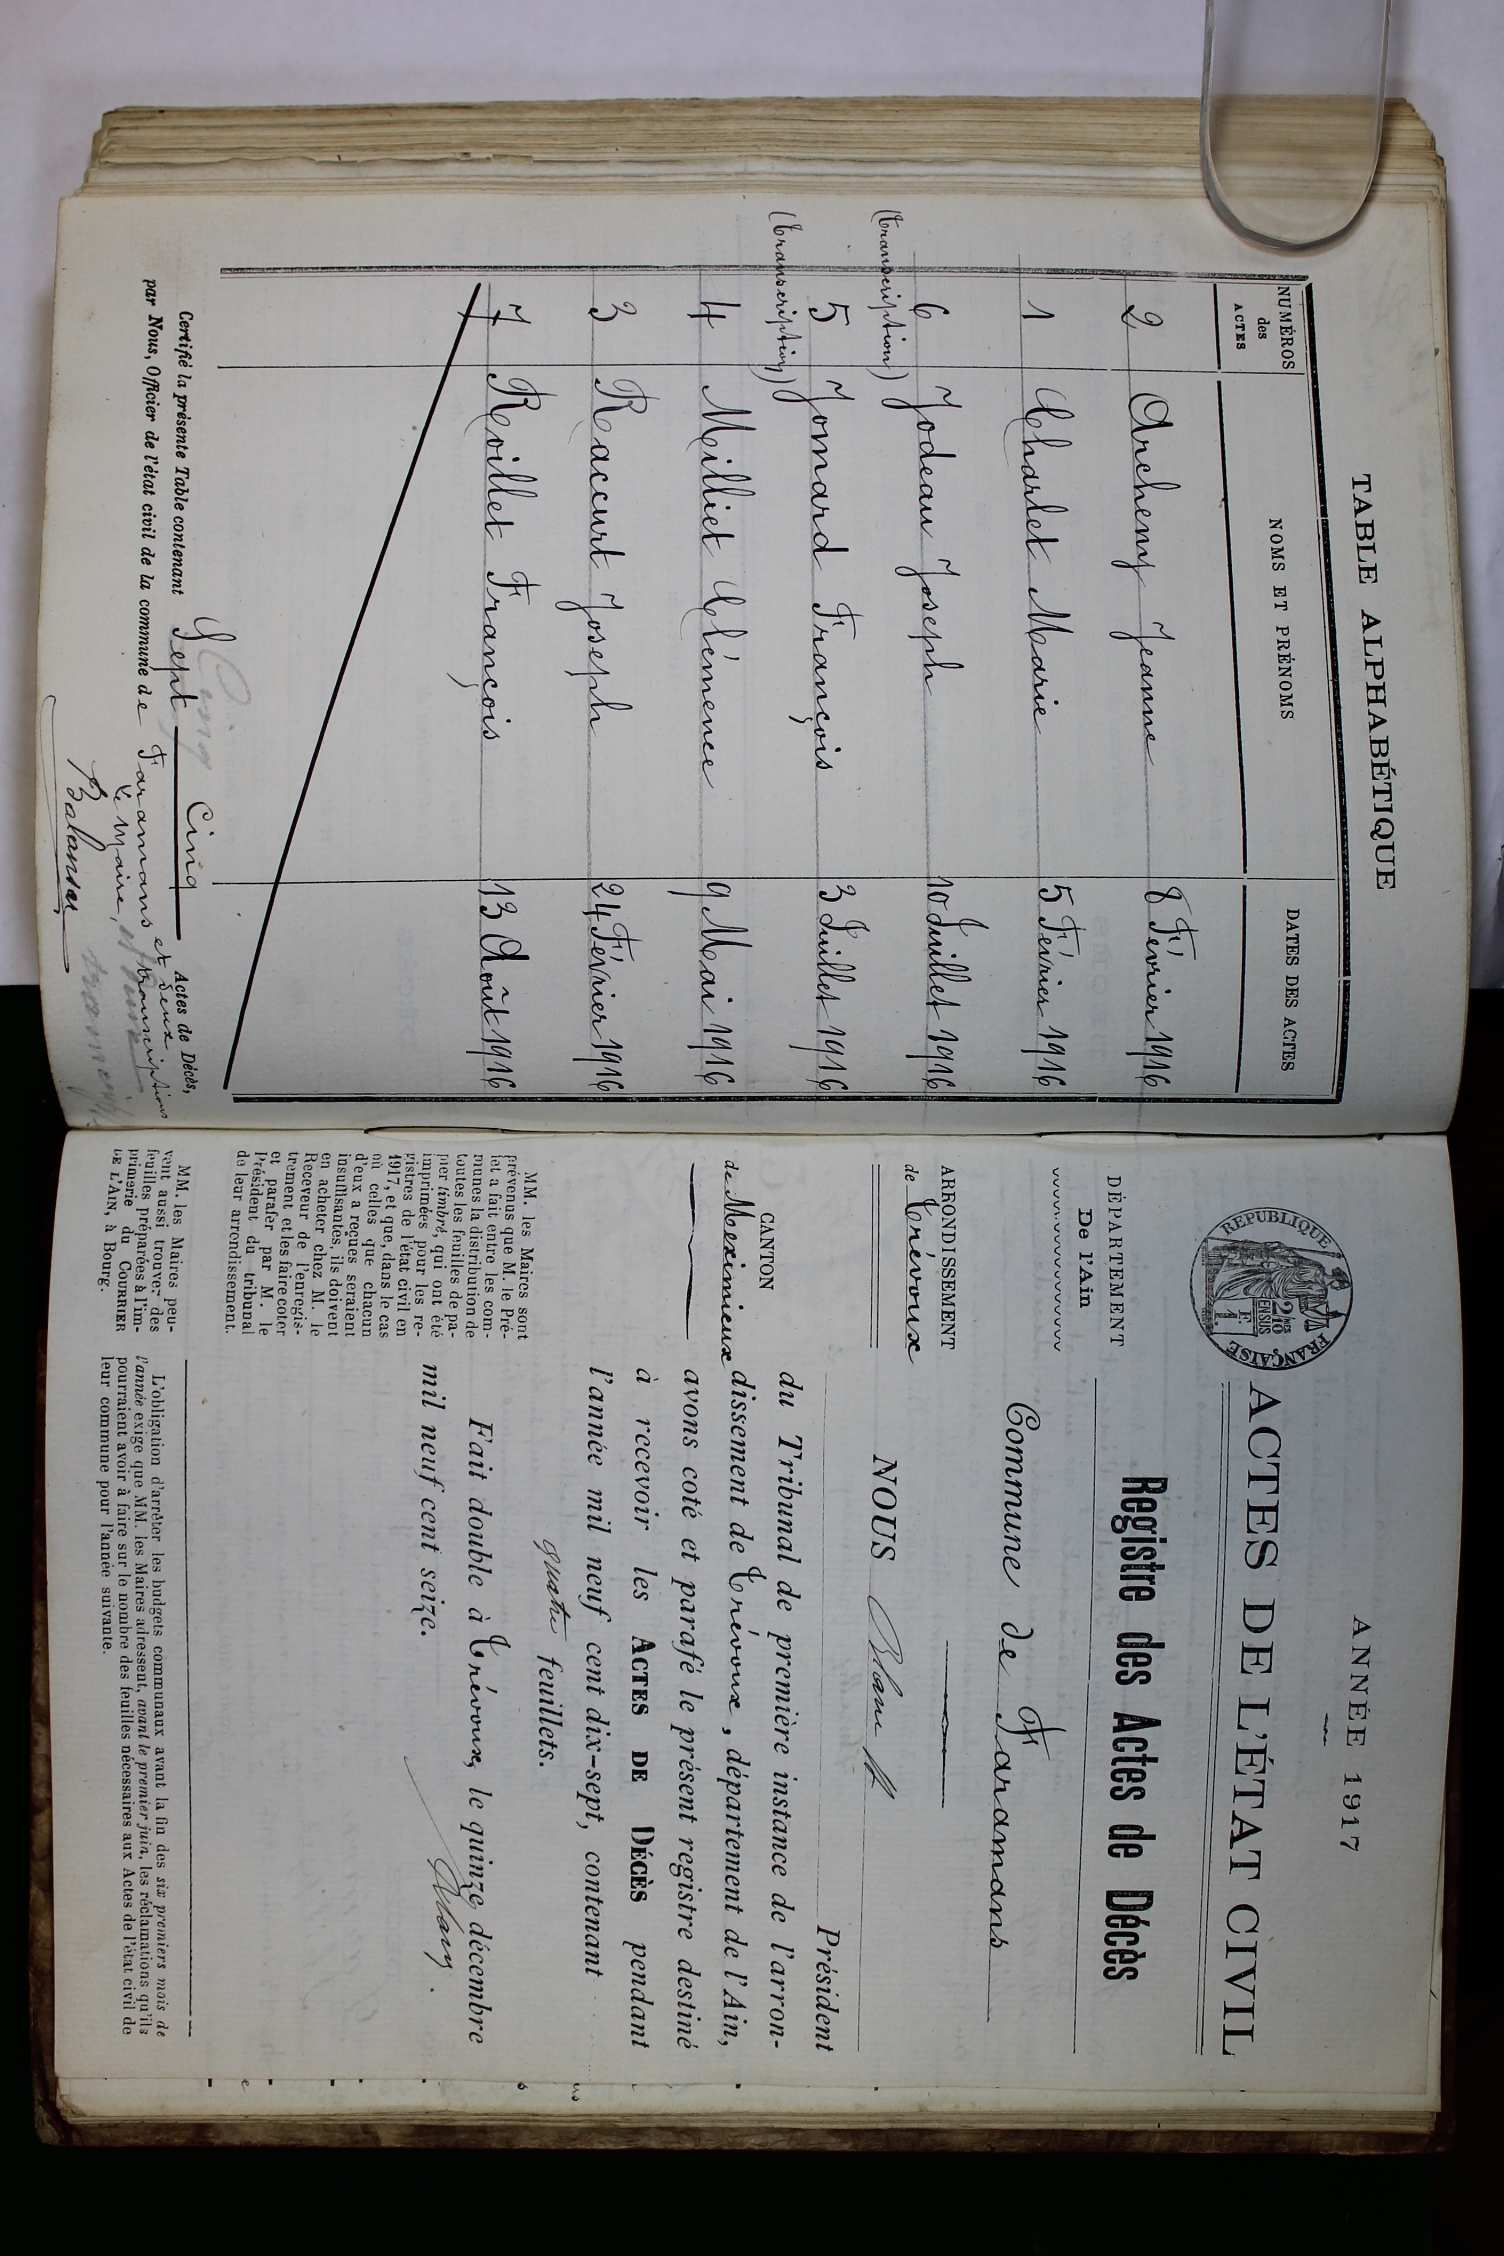 TABLE ALPHABÉTIQUE
NUMÉROS
des
ACTES
NOMS ET PRÉNOMS
DATES DES ACTES
2 Archeny Jeanne 8 Février 1916
1 Charlet Marie 5 Février 1916
6 Jodeau Joseph 10 Juillet 1916
(transcription)
5 Jomard François 3 Juillet 1916
(transcription)
4 Milliet Clémence 9 Mai 1916
3 Raccurt Joseph 24 Février 1916
7 Roillet François 13 Août 1916
Certifié la présente Table contenant Sept Cinq Actes de Décès,
et deux transcriptions
par Nous, Officier de l'état civil de la commune de Faramans
Le Maire,
ANNÉE 1917
ACTES DE L'ÉTAT CIVIL
REPUBLIQUE FRANÇAISE
2/10 EN SUS
F. 1.
Registre des Actes de Décès
DÉPARTEMENT
De l'Ain
Commune de Faramans
ARRONDISSEMENT
de Trévoux
NOUS
Président
CANTON
de Meximieux
du Tribunal de première instance de l'arron-
dissement de Trévoux, département de l'Ain,
avons coté et parafé le présent registre destiné
à recevoir les ACTES DE DÉCÈS pendant
l'année mil neuf cent dix-sept, contenant
quatre feuillets.
Fait double à Trévoux, le quinze décembre
mil neuf cent seize.
MM. les Maires sont
prévenus que M. le Pré-
fet a fait entre les com-
munes la distribution de
toutes les feuilles de pa-
pier timbré, qui ont été
imprimées pour les re-
gistres de l'état civil en
1917, et que, dans le cas
où celles que chacun
d'eux a reçues seraient
insuffisantes, ils doivent
en acheter chez M. le
Receveur de l'enregis-
trement et les faire coter
et parafer par M. le
Président du tribunal
de leur arrondissement.
MM. les Maires peu-
vent aussi trouver des
feuilles préparées à l'im-
primerie du COURRIER
DE L'AIN, à Bourg.
L'obligation d'arrêter les budgets communaux avant la fin des six premiers mois de
l'année exige que MM. les Maires adressent, avant le premier juin, les réclamations qu'ils
pourraient avoir à faire sur le nombre des feuilles nécessaires aux Actes de l'état civil de
leur commune pour l'année suivante.